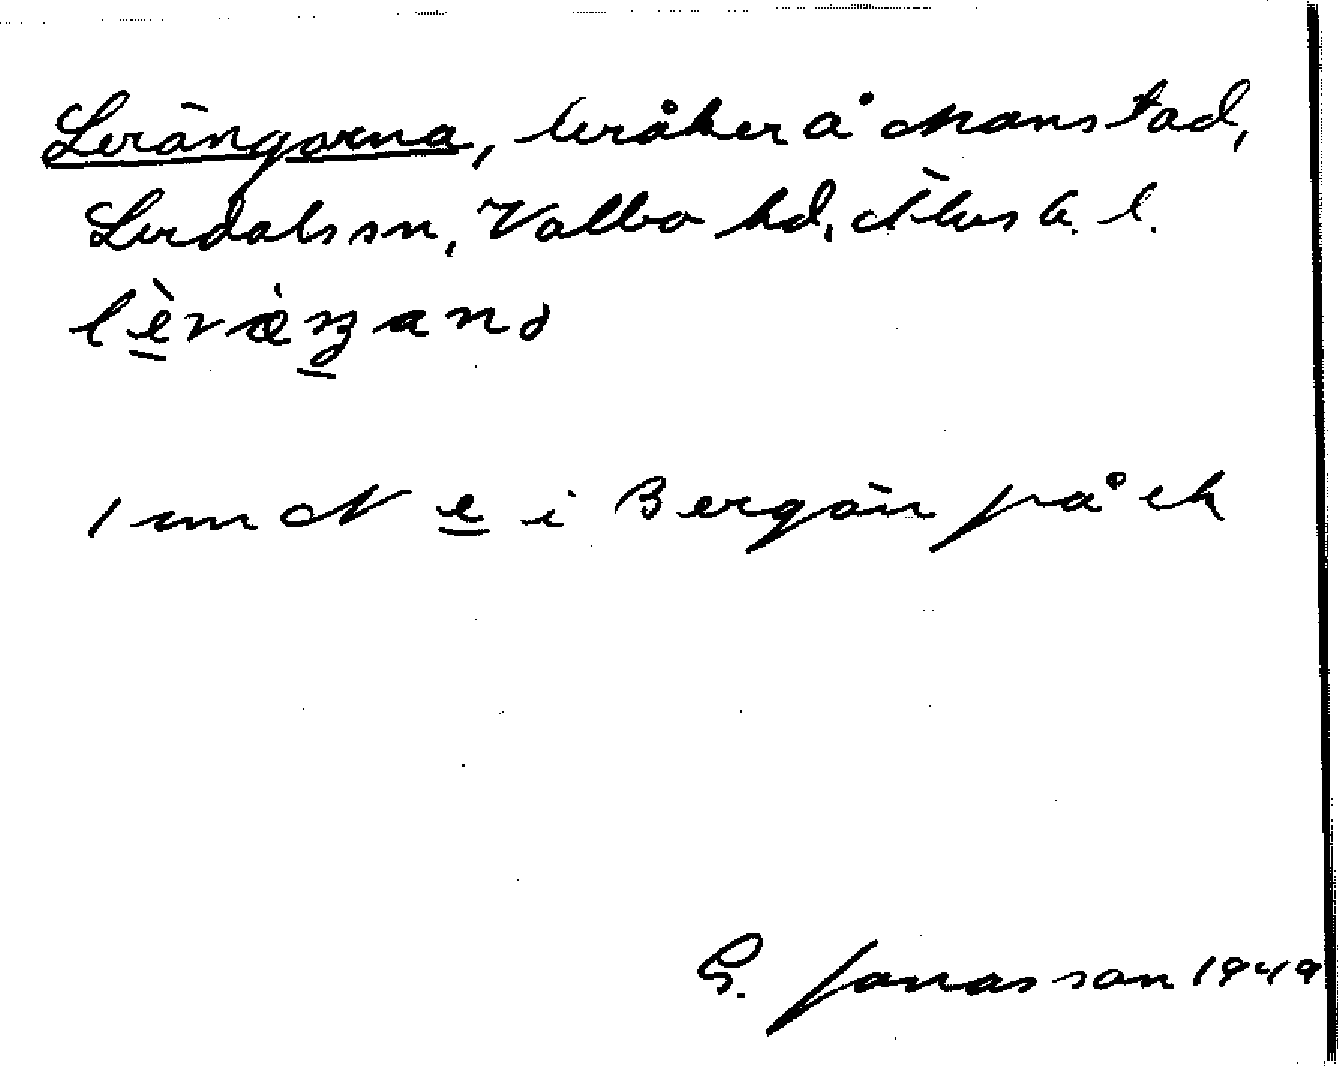 Lerängarna, leråker å Manstad,
Lerdalssn, Valbo hd, Älvsb. l.
lèræ̀ŋana
1 cm N e i Bergän på ek
G. Jonasson 1949